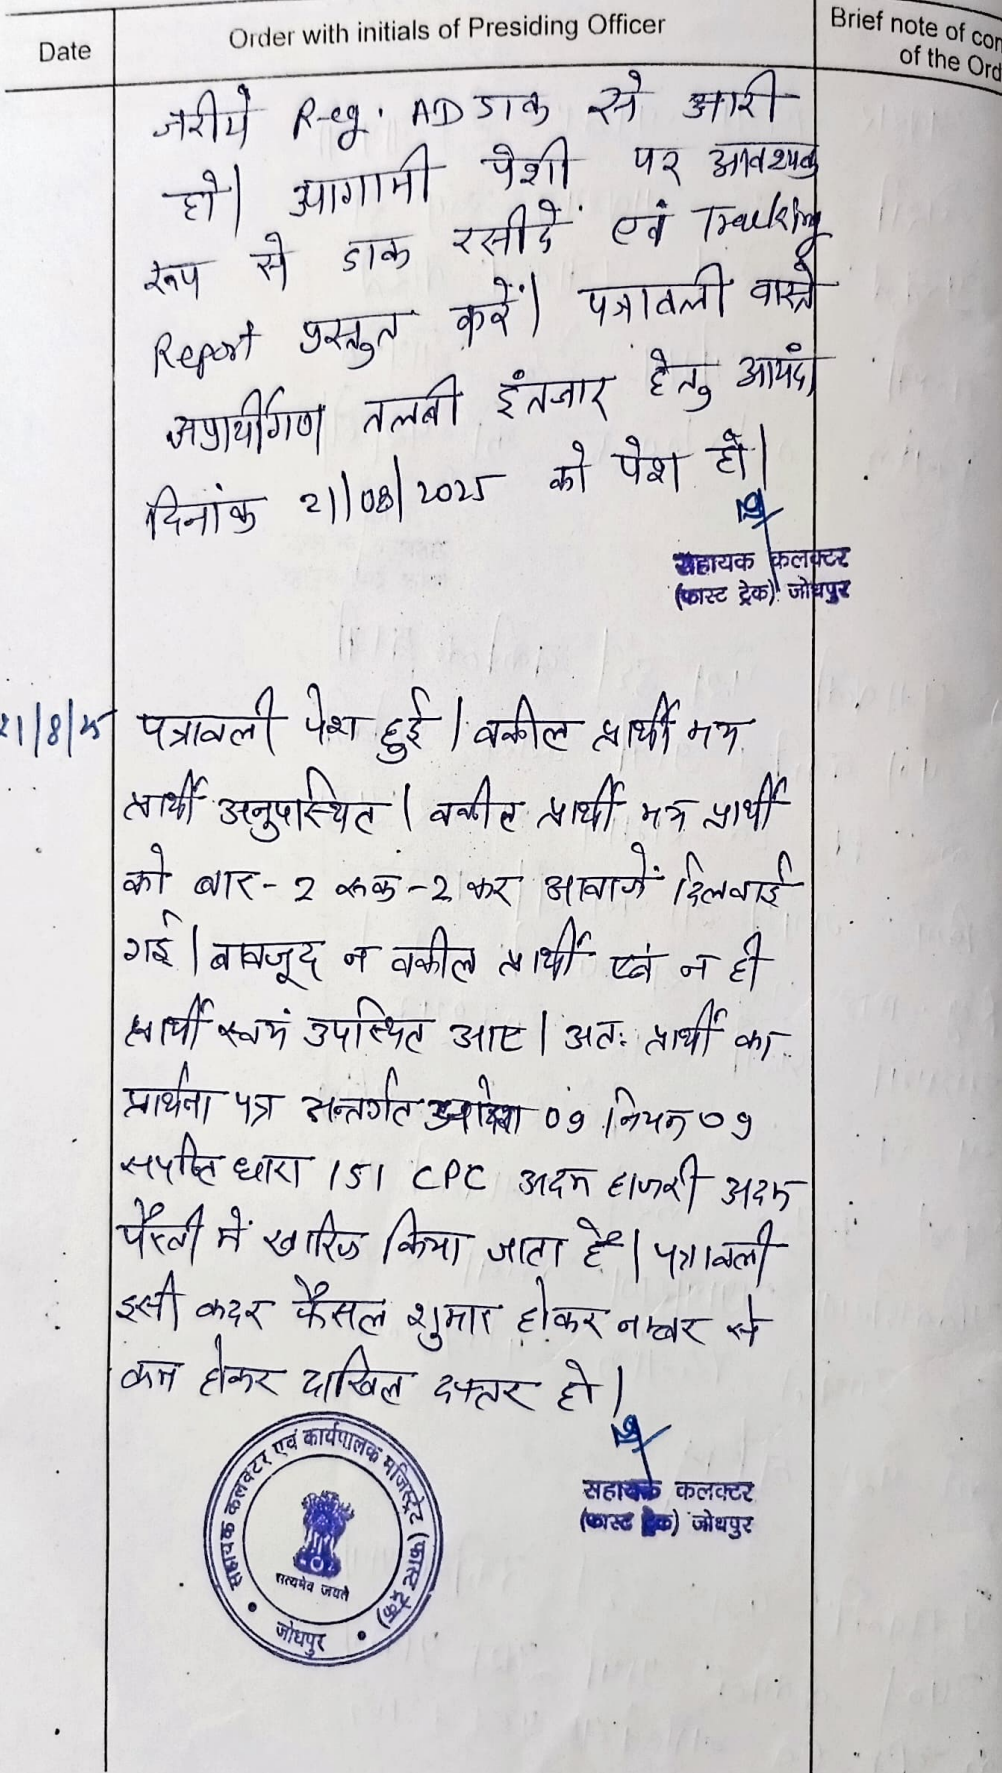 Date
Order with initials of Presiding Officer
Brief note of con
of the Ord
जरीये Reg. AD डाक से जारी
हो। आगामी पेशी पर आवश्यक
रूप से डाक रसीदें एवं Tracking
Report प्रस्तुत करें। पत्रावली वास्ते
अप्रार्थीगण तलबी इंतजार हेतु आयंदा
दिनांक 21/08/2025 को पेश हो।
सहायक कलक्टर
(फास्ट ट्रेक) जोधपुर
21/8/25
पत्रावली पेश हुई। वकील प्रार्थी मय
प्रार्थी अनुपस्थित। वकील प्रार्थी मय प्रार्थी
को बार-2 रूक-2 कर आवाजें दिलवाई
गई। बावजूद न वकील प्रार्थी एवं न ही
प्रार्थी स्वयं उपस्थित आए। अतः प्रार्थी का
प्रार्थना पत्र अन्तर्गत आदेश 09 नियम 09
सपठित धारा 151 CPC अदम हाजरी अदम
पैरवी में खारिज किया जाता है। पत्रावली
इसी कदर फैसल शुमार होकर नम्बर से
कम होकर दाखिल दफ्तर हो।
सहायक कलक्टर
(फास्ट ट्रेक) जोधपुर
सहायक कलक्टर एवं कार्यपालक मजिस्ट्रेट (फास्ट ट्रेक)
सत्यमेव जयते
जोधपुर